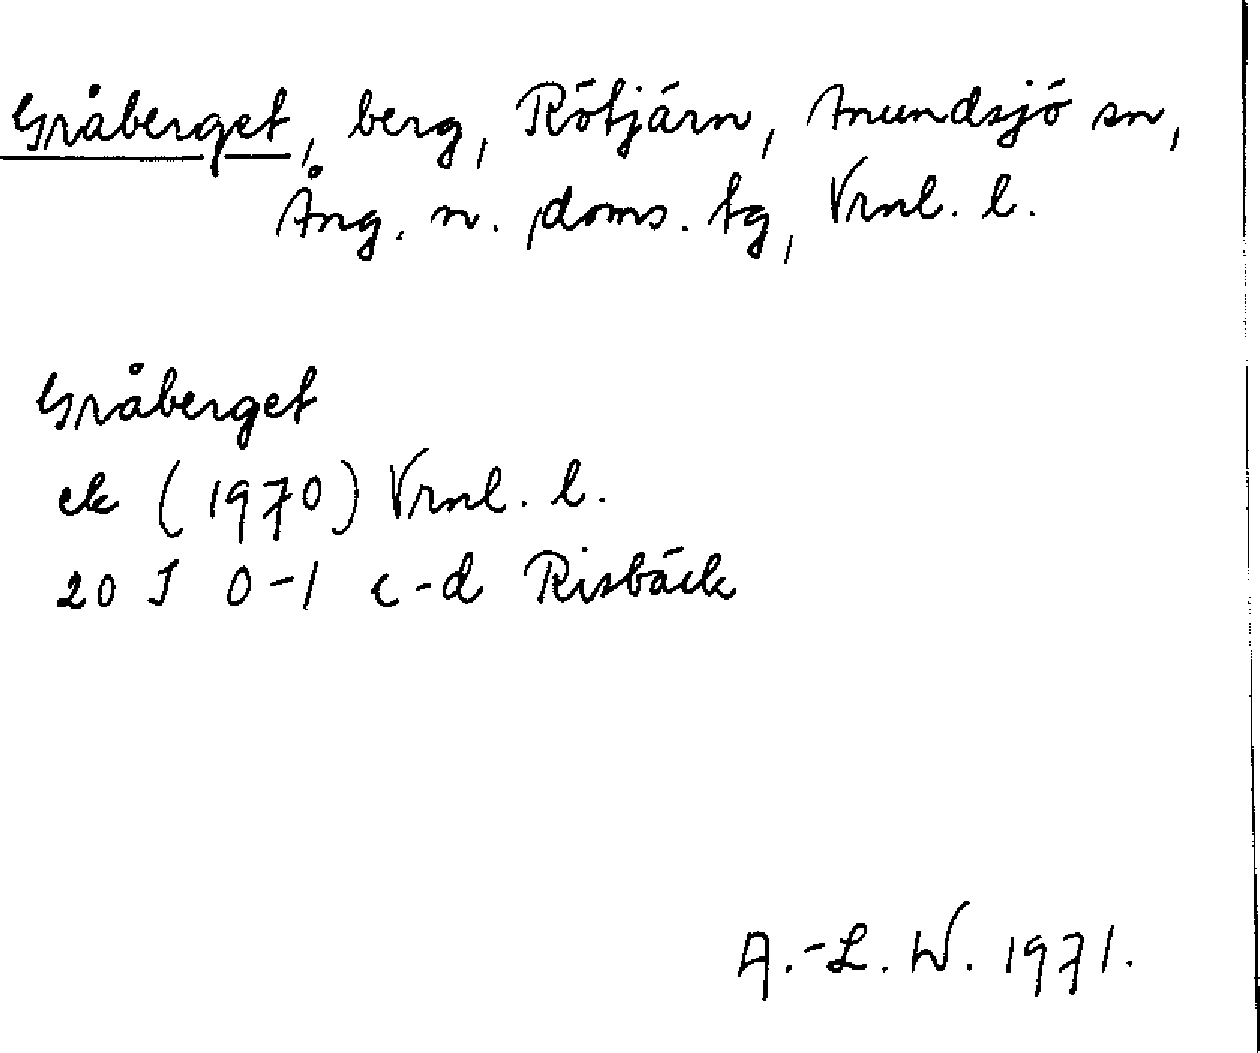 Gråberget, berg, Rötjärn, Anundsjö sn,
Ång. n. doms. tg, Vrnl. l.
Gråberget
ek (1970) Vrnl. l.
20 I 0-1 c-d Risbäck
A.-L. W. 1971.